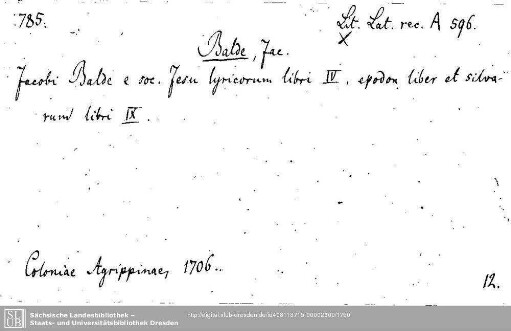 785.
Lit. Lat. rec. A 596.
x
Balde, Jac.
Jacobi Balde e soc. Jesu lyricorum libri IV. epodon liber et silva-
rum libri IX.
Coloniae Agrippinae, 1706..
12.
SLUB
Sächsische Landesbibliothek –
Staats- und Universitätsbibliothek Dresden